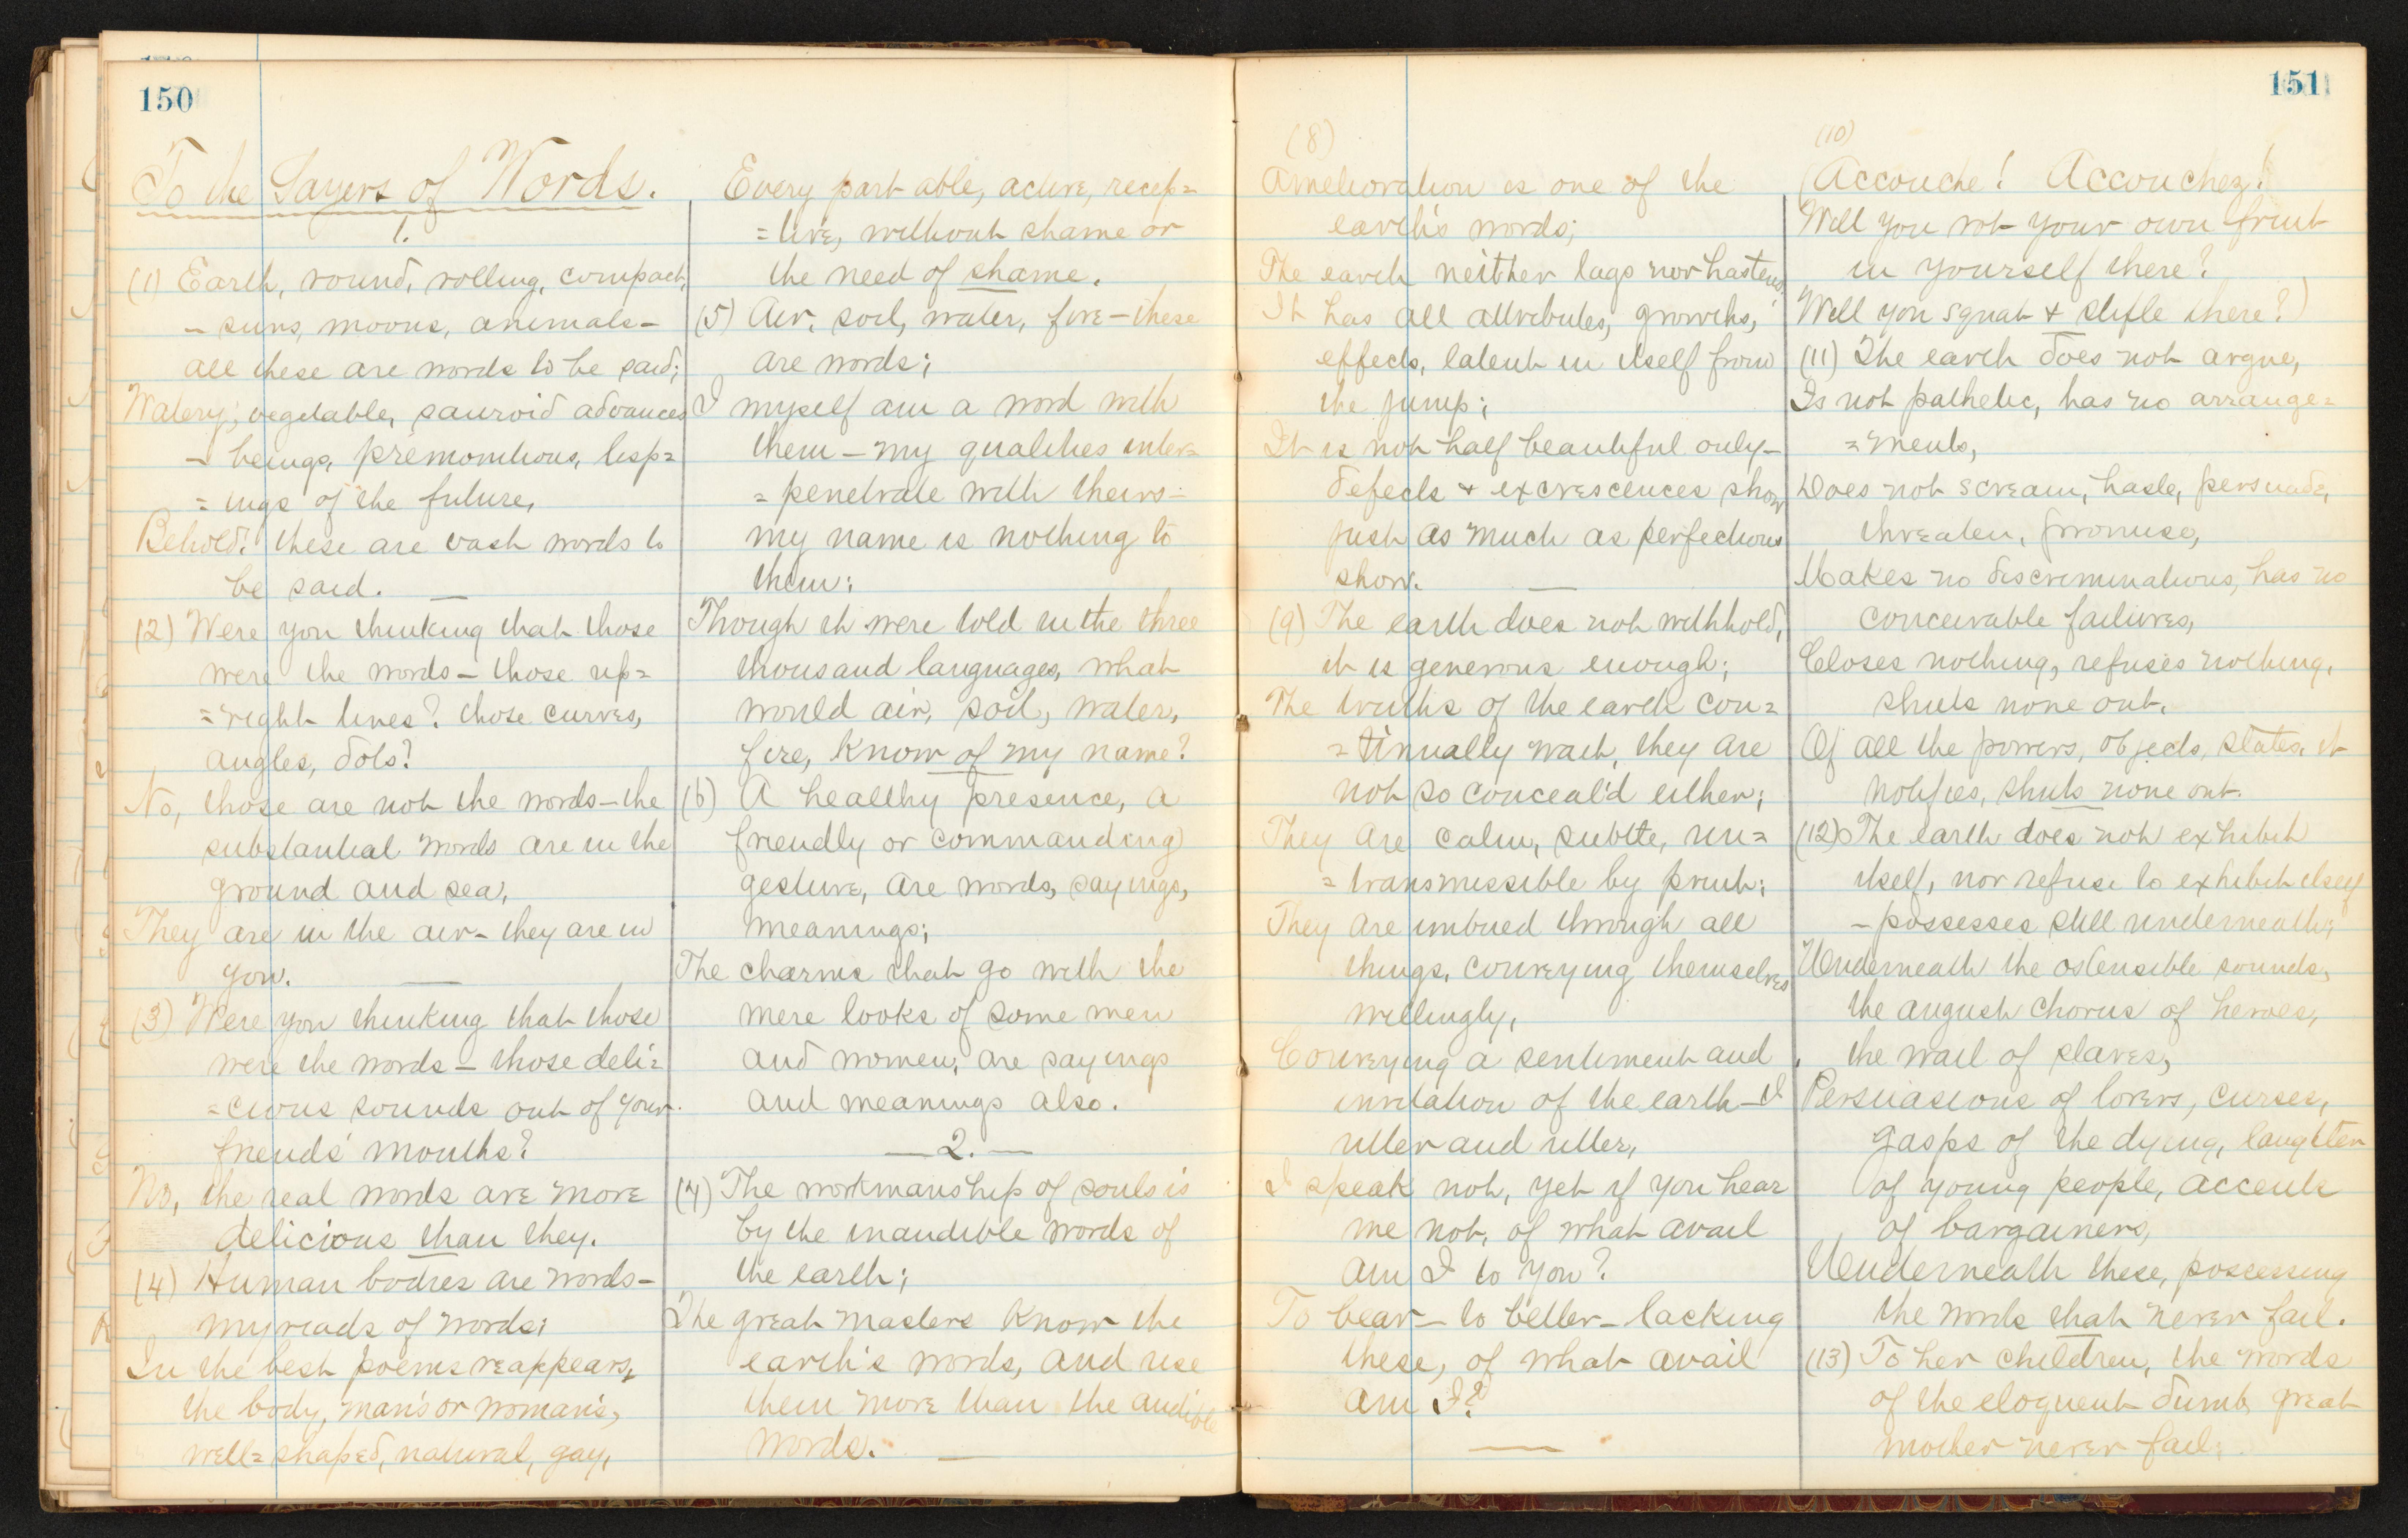 150
To the Sayers of Words.
1.
(1) Earth, round, rolling, compact,
– suns, moons, animals –
all these are words to be said;
Watery, vegetable, sauroid advances
– beings, premonitions, lisp=
=ings of the future,
Behold! these are vast words to
be said. —
(2) Were you thinking that those
were the words – those up=
=right lines? those curves,
angles, dots?
No, those are not the words – the
substantial words are in the
ground and sea,
They are in the air – they are in
you. —
(3) Were you thinking that those
were the words – those deli=
=cious sounds out of your
friends' mouths?
No, the real words are more
delicious than they.
(4) Human bodies are words –
myriads of words;
In the best poems reappears,
the body, man's or woman's,
well=shaped, natural, gay,
Every part able, active, recep=
=tive, without shame or
the need of shame.
(5) Air, soil, water, fire – these
are words;
I myself am a word with
them – my qualities inter=
=penetrate with theirs –
my name is nothing to
them;
Though it were told in the three
thousand languages, what
would air, soil, water,
fire, know of my name?
(6) A healthy presence, a
friendly or commanding
gesture, are words, sayings,
meanings;
The charms that go with the
mere looks of some men
and women, are sayings
and meanings also.
— 2. —
(7) The workmanship of souls is
by the inaudible words of
the earth;
The great masters know the
earth's words, and use
them more than the audible
words. —
151
(8)
Amelioration is one of the
earth's words;
The earth neither lags nor hastens,
It has all attributes, growths,
effects, latent in itself from
the jump;
It is not half beautiful only –
defects & excrescences show
just as much as perfections
show. —
(9) The earth does not withhold,
it is generous enough;
The truths of the earth con=
=tinually wait, they are
not so conceal'd either;
They are calm, subtle, un=
=transmissible by print;
They are imbued through all
things, conveying themselves
willingly,
Conveying a sentiment and
invitation of the earth – I
utter and utter,
I speak not, yet if you hear
me not, of what avail
am I to you?
To bear – to better – lacking
these, of what avail
am I?
—
(10)
(Accouche! Accouchez!
Will you rot your own fruit
in yourself there?
Will you squat & stifle there?)
(11) The earth does not argue,
Is not pathetic, has no arrange=
=ments,
Does not scream, haste, persuade,
threaten, promise,
Makes no discriminations, has no
conceivable failures,
Closes nothing, refuses nothing,
shuts none out.
Of all the powers, objects, states, it
notifies, shuts none out.
(12) The earth does not exhibit
itself, nor refuse to exhibit itself
– possesses still underneath;
Underneath the ostensible sounds,
the august chorus of heroes,
the wail of slaves,
Persuasions of lovers, curses,
gasps of the dying, laughter
of young people, accents
of bargainers,
Underneath these, possessing
the words that never fail.
(13) To her children, the words
of the eloquent dumb great
mother never fail;